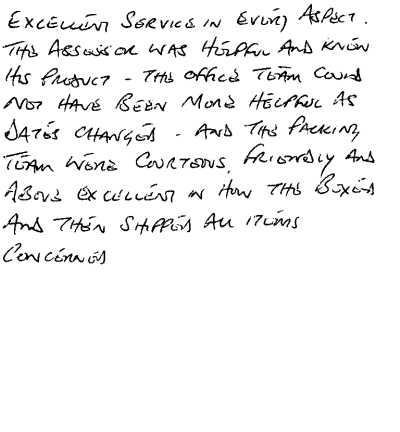 EXCELLENT SERVICE IN EVERY ASPECT.
THE ASSESSOR WAS HELPFUL AND KNEW
HIS PRODUCT - THE OFFICE TEAM COULD
NOT HAVE BEEN MORE HELPFUL AS
DATES CHANGED - AND THE PACKING
TEAM WERE COURTEOUS, FRIENDLY AND
ABOVE EXCELLENT IN HOW THE BOXED
AND THEN SHIPPED ALL ITEMS
CONCERNED